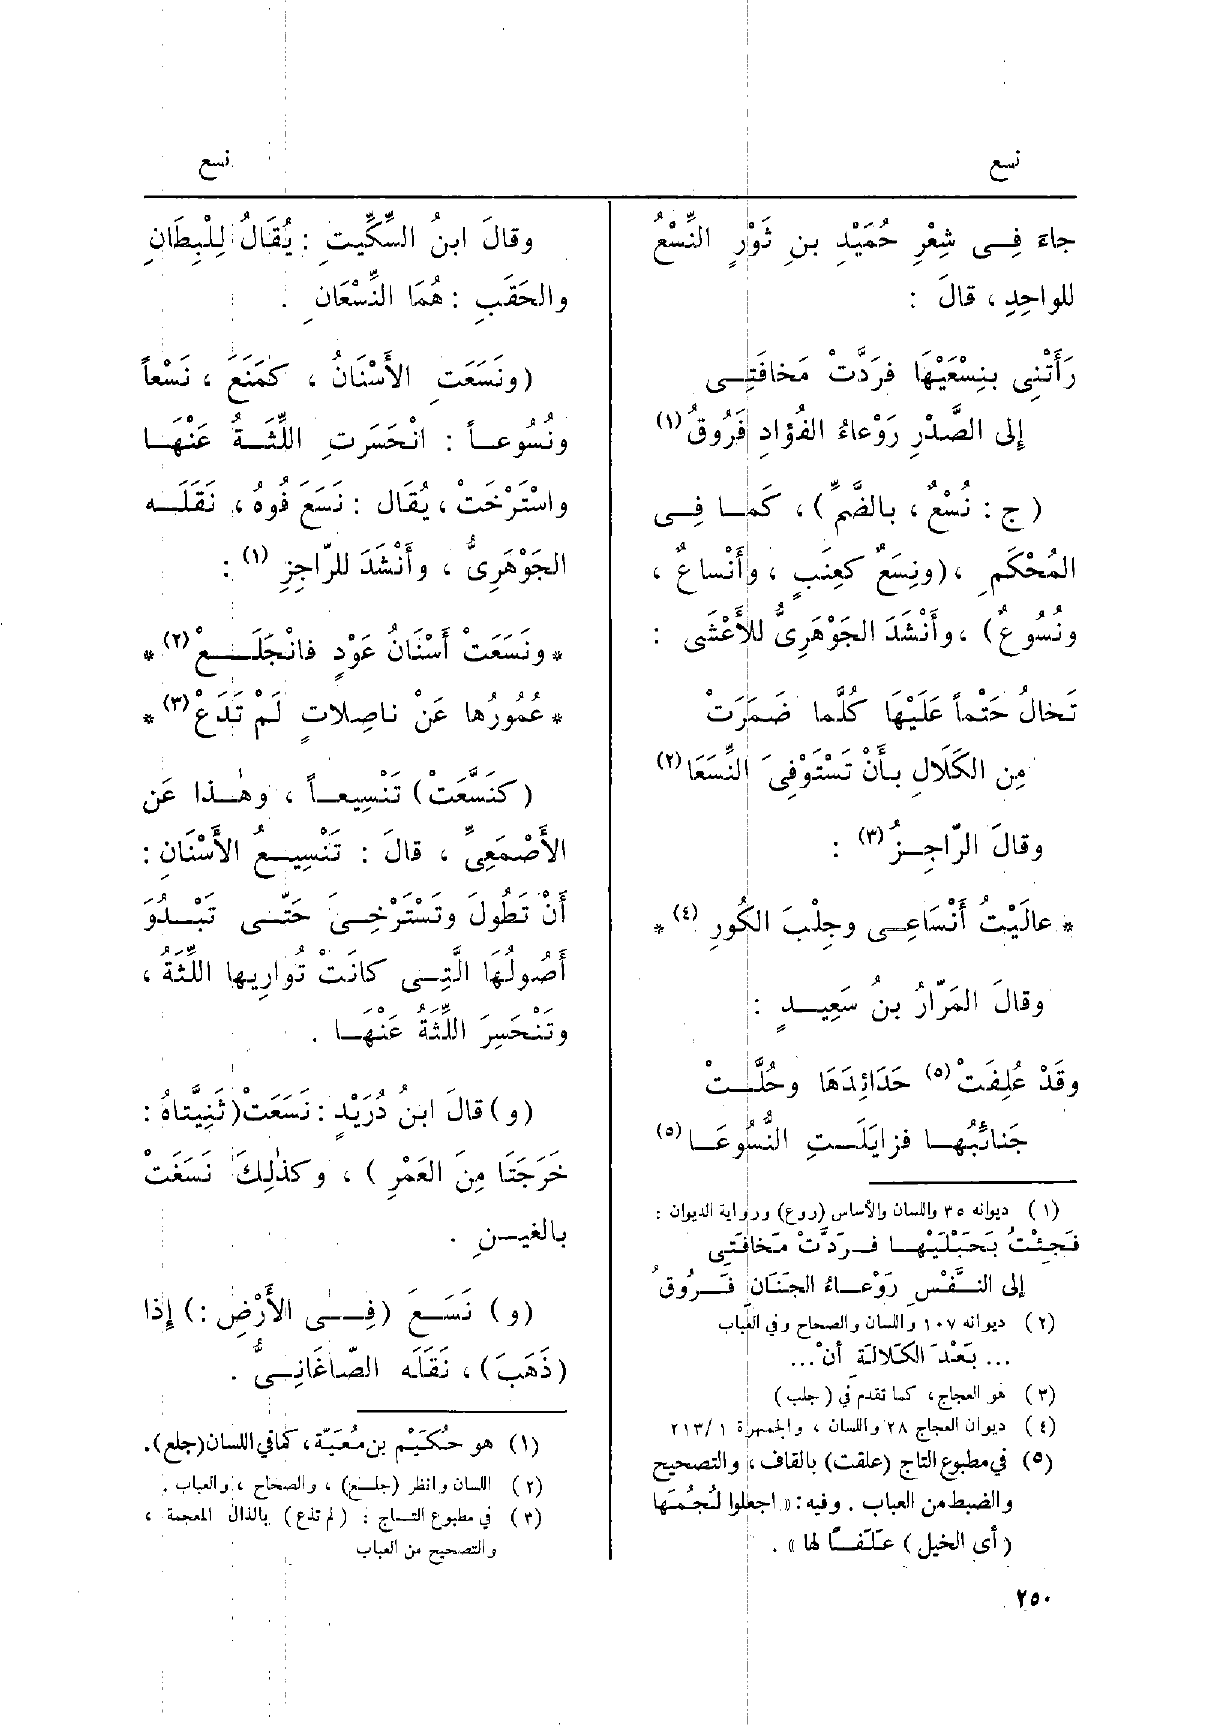 نسع
نسع
جاءَ فِـى شِعْرِ حُمَيْدِ بنِ ثَوْرٍ النِّسْعُ
للواحِدِ ، قالَ :
رَأَتْنِى بنِسْعَيْهَا فردَّتْ مَخافَتِـى
إلى الصَّدْرِ رَوْعاءُ الفُؤادِ فَرُوقُ (١)
( ج : نُسْعٌ ، بالضَّمِّ ) ، كَمـا فِـى
المُحْكَمِ ، (ونِسَعٌ كعِنَبٍ ، وأَنْساعٌ ،
ونُسُوعٌ) ، وأَنْشَدَ الجَوْهَرِىُّ للأَعْشَى :
تَخالُ حَتْماً عَلَيْهَا كُلَّما ضَمَرَتْ
مِن الكَلَالِ بـأَنْ تَسْتَوْفِىَ النِّسَعَا (٢)
وقالَ الرّاجِـزُ (٣) :
* عالَيْتُ أَنْسَاعِـى وجِلْبَ الكُورِ (٤) *
وقالَ المَرّارُ بنُ سَعِيـدٍ :
وقَدْ عُلِفَتْ (٥) حَدَائِدَهَا وحُلَّـتْ
جَنائبُهـا فزايَلَـتِ النُّسُوعَـا (٥)
(١) ديوانه ٣٥ واللسان والأساس (روع) ورواية الديوان :
فَجِئْتُ بَحَبْلَيْهـا فـردَّتْ مَخافَتِى
إلى النَّفْسِ رَوْعـاءُ الجَنَانِ فَـرُوقُ
(٢) ديوانه ١٠٧ واللسان والصحاح وفي العباب
... بَعْدَ الكَلالة أن ْ ...
(٣) هو العجاج، كما تقدم في (جلب)
(٤) ديوان العجاج ٢٨ واللسان ، والجمهرة ١ /٢١٣
(٥) في مطبوع التاج (علقت) بالقاف ، والتصحيح
والضبط من العباب . وفيه : « اجعلوا لُجُمَها
(أى الخيل) عَلَفـًا لها » .
٢٥٠
وقالَ ابنُ السِّكِّيتِ : يُقَالُ لِلْبِطَانِ
والحَقَبِ : هُمَا النِّسْعَانِ .
(ونَسَعَتِ الأَسْنَانُ ، كمَنَعَ ، نَسْعاً
ونُسُوعـاً : انْحَسَرَتِ اللِّثَـةُ عَنْهَـا
واسْتَرْخَتْ ، يُقَال : نَسَعَ فُوهُ ، نَقَلَـه
الجَوْهَرِىُّ ، وأَنْشَدَ للرّاجِزِ (١) :
* ونَسَعَتْ أَسْنَانُ عَوْدٍ فانْجَلَـعْ (٢) *
* عُمُورُها عَنْ ناصِلاتٍ لَمْ تَدَعْ (٣) *
(كنَسَّعَتْ) تَنْسِيعـاً ، وهٰـذا عَن
الأَصْمَعِىِّ ، قالَ : تَنْسِيـعُ الأَسْنَانِ :
أَنْ تَطُولَ وتَسْتَرْخِـىَ حَتّـى تَبْـدُوَ
أُصُولُهَا الَّتِـى كانَتْ تُوارِيها اللِّثَةُ ،
وتَنْحَسِرَ اللِّثَةُ عَنْهَـا .
(و) قالَ ابنُ دُرَيْدٍ : نَسَعَتْ (ثَنِيَّتاهُ :
خَرَجَتَا مِنَ العَمْرِ ) ، وكذٰلِكَ نَسَغَتْ
بالغَيـنِ .
(و) نَسَـعَ (فِـى الأَرْضِ :) إِذا
(ذَهَبَ) ، نَقَلَه الصّاغَانِـىُّ .
(١) هو حُكَيْم بن مُعَيّة ، كما في اللسان (جلع) .
(٢) اللسان وانظر (جلـع) ، والصحاح ، والعباب .
(٣) في مطبوع التـاج : (لم تذع) بالذال المعجمة ،
والتصحيح من العباب